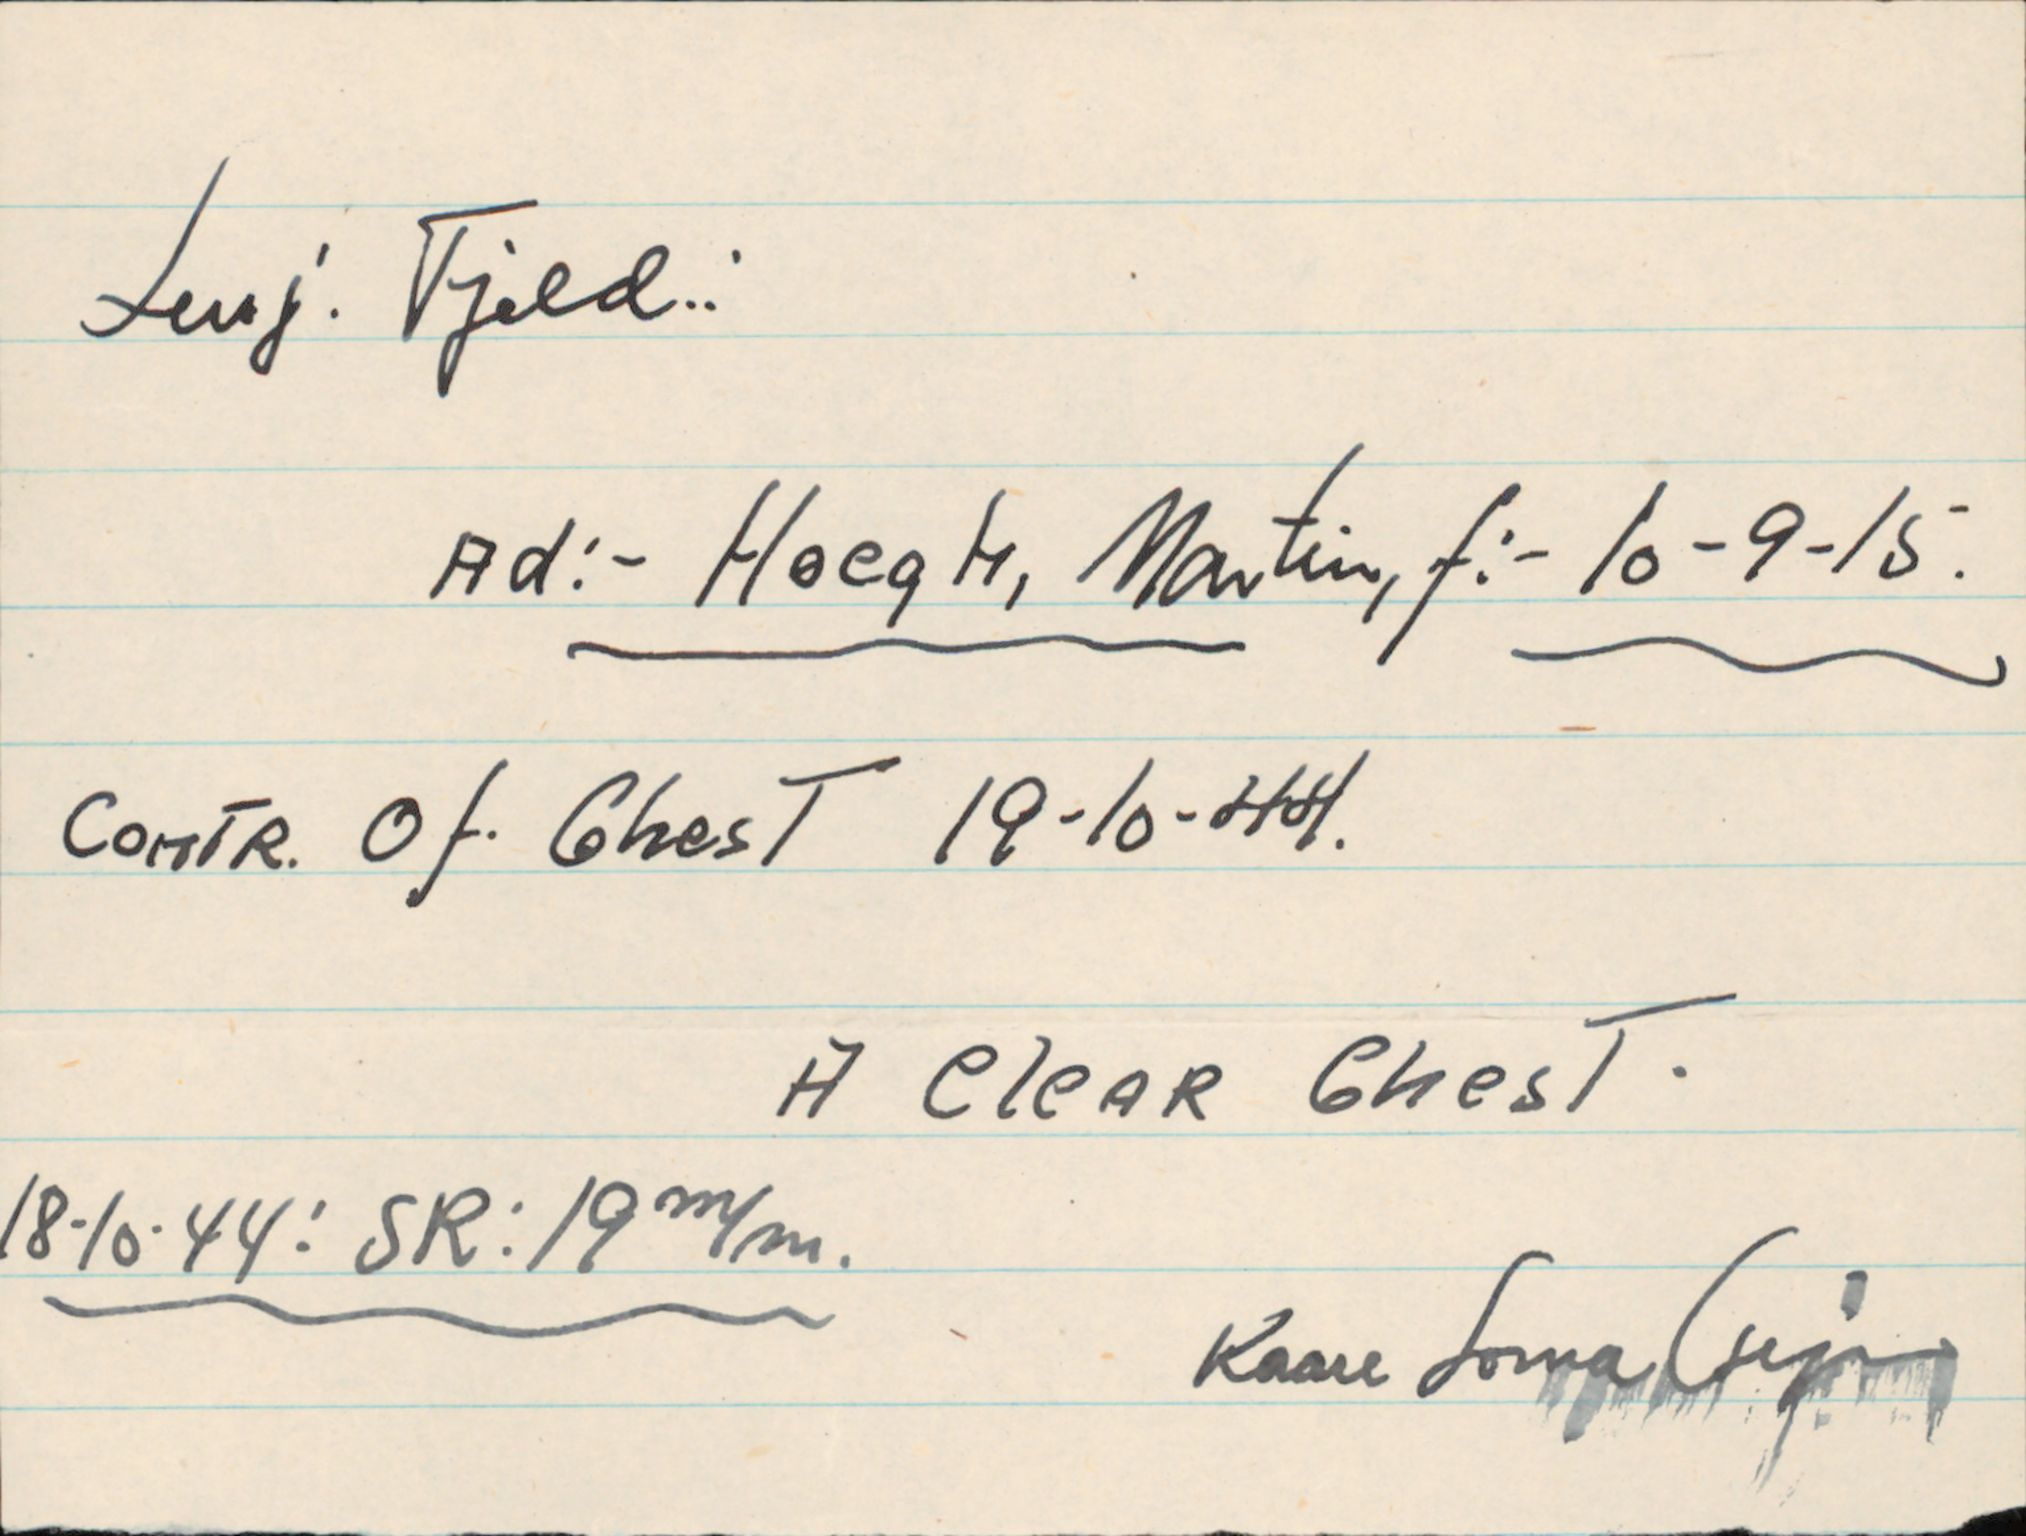 Lenj. Fjeld..:
Ad:- Hoegh, Martin, f:- 10-9-15.
Contr. Of. Chest 19-10-44.
A Clear Chest.
18-10-44: SR: 19 m/m.
Kaare